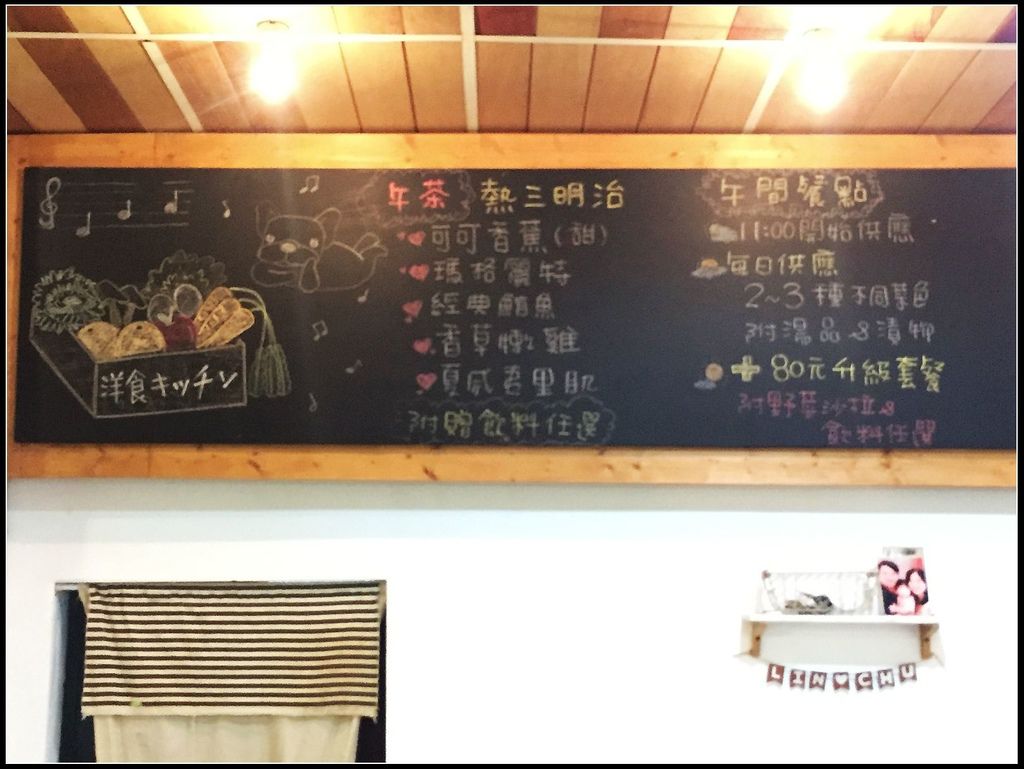 洋食キッチン
午茶 熱三明治
可可香蕉(甜)
瑪格麗特
經典鮪魚
香草嫩雞
夏威夷里肌
附贈飲料任選
午間餐點
11:00開始供應
每日供應
2~3種不同菜色
附湯品&漬物
+80元升級套餐
附野菜沙拉&
飲料任選
LIN♥CHU